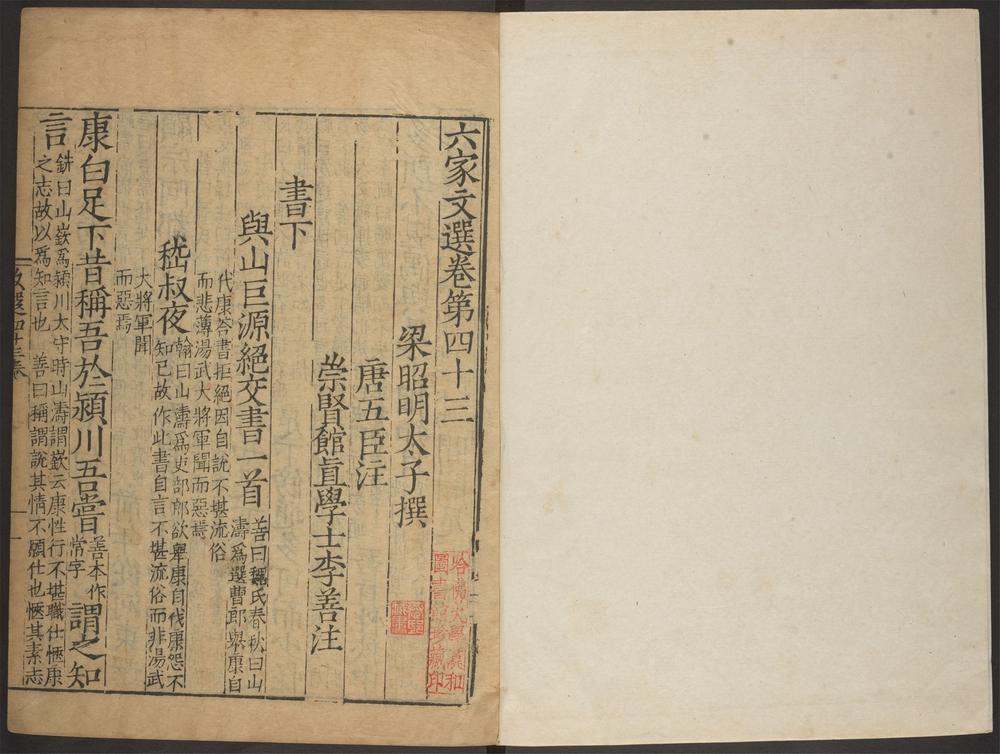 六家文選卷第四十三
梁昭明太子撰
唐五臣注
崇賢館直學士李善注
書下
與山巨源絕交書一首
善曰魏氏春秋曰山
濤爲選曹郎舉康自
代康荅書拒絕因自說不堪流俗
而悲薄湯武大將軍聞而惡焉
嵇叔夜
翰曰山濤爲吏部郎欲舉康自代康怨不
知已故作此書自言不堪流俗而非湯武
大將軍聞
而惡焉
康白足下昔稱吾於潁川吾嘗
善本作
常字
謂之知
言
銑曰山嶔爲潁川太守時山濤謂嶔云康性行不堪職仕愜康
之志故以爲知言也 善曰稱謂說其情不願仕也愜其素志
哈佛大學漢和
圖書館珍藏印